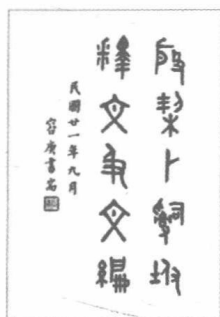 殷栔卜辭坿
釋文及文編
民國廿一年九月
容庚書耑